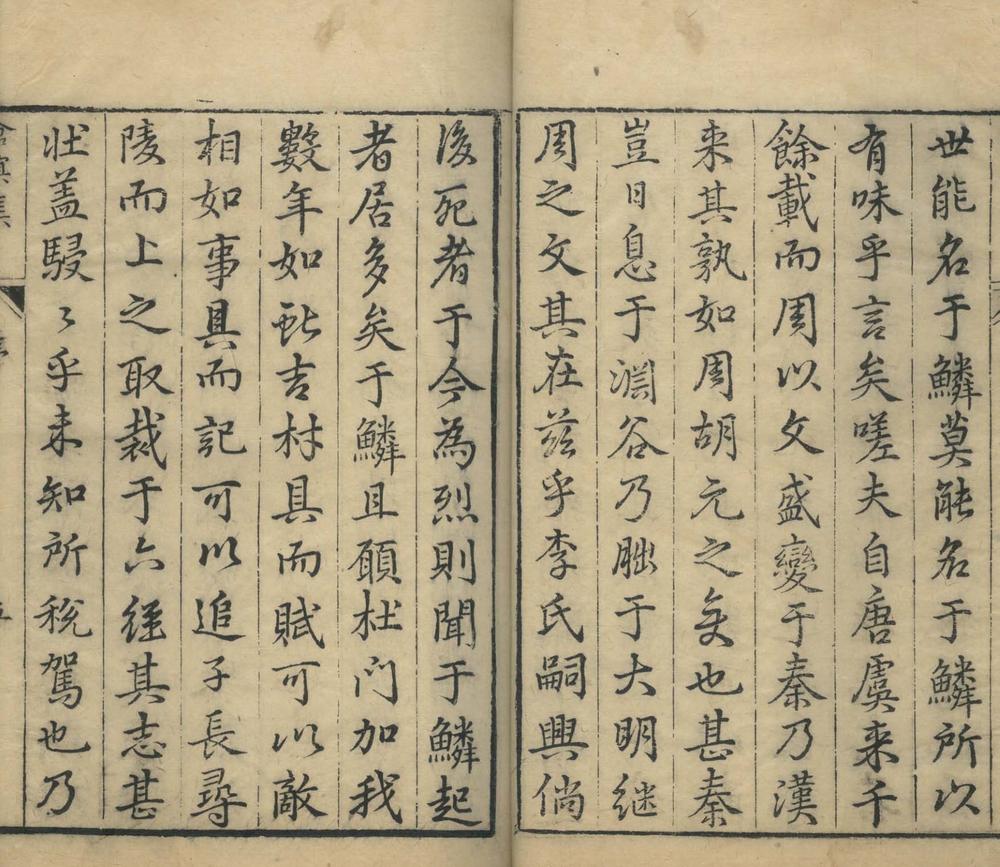 世能名于鱗莫能名于鱗所以
有味乎言矣嗟夫自唐虞来千
餘載而周以文盛變于秦乃漢
来其孰如周胡元之也甚秦
豈日息于淵谷乃朏于大明继
周之文其在茲乎李氏嗣興倘
後死者于今為烈則聞于鱗起
者居多矣于鱗且願杜门加我
數年如献吉材具而賦可以敵
相如事具而記可以追子長尋
陵而上之取裁于六经其志甚
壮盖駸〻乎未知所税駕也乃